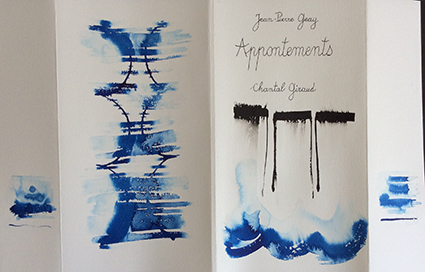 Jean-Pierre Geay
Appontements
Chantal Giraud